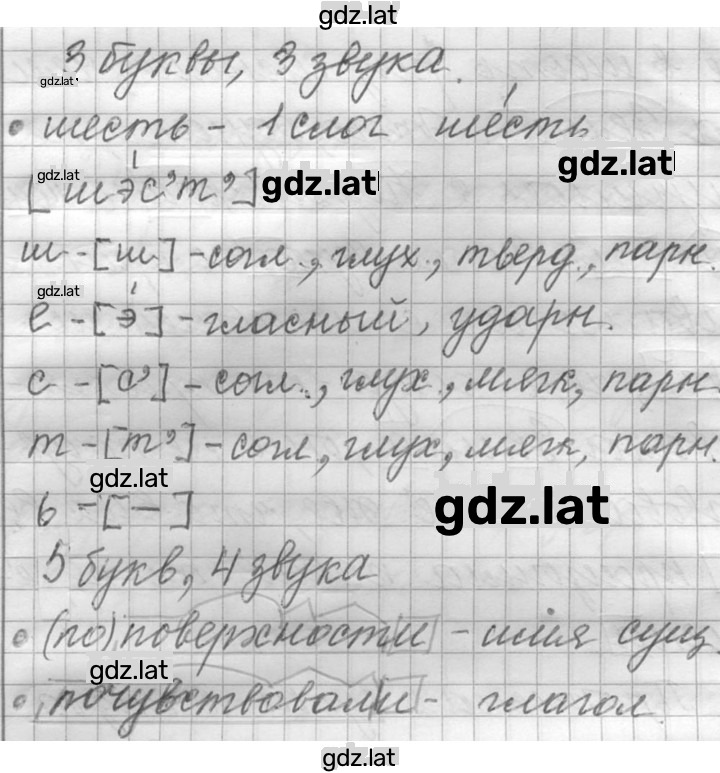 gdz.lat
3 буквы, 3 звука.
gdz.lat
• шесть - 1 слог ше́сть
gdz.lat
gdz.lat
[шэ́с'т'] gdz.lat
ш - [ш] - согл., глух., тверд., парн.
gdz.lat
е - [э́] - гласный, ударн.
с - [с'] - согл., глух., мягк, парн.
т - [т'] - согл, глух, мягк, парн.
gdz.lat
ь - [—] gdz.lat
5 букв, 4 звука
• (по) поверхности - имя сущ.
gdz.lat
• почувствовали - глагол.
gdz.lat